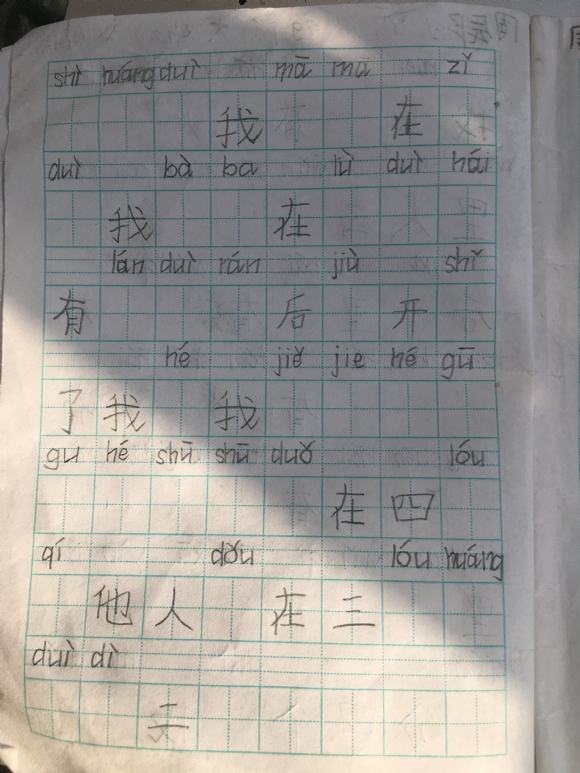 shì huáng duì mā ma zǐ
我 在
duì bà ba lǜ duì hái
我 在
lán duì rán jiù shǐ
有 后 开
hé jiě jie hé gū
了 我 我
gu hé shū shū duǒ lóu
在 四
qí dǒu lóu huáng
他 人 在 三
duì dì